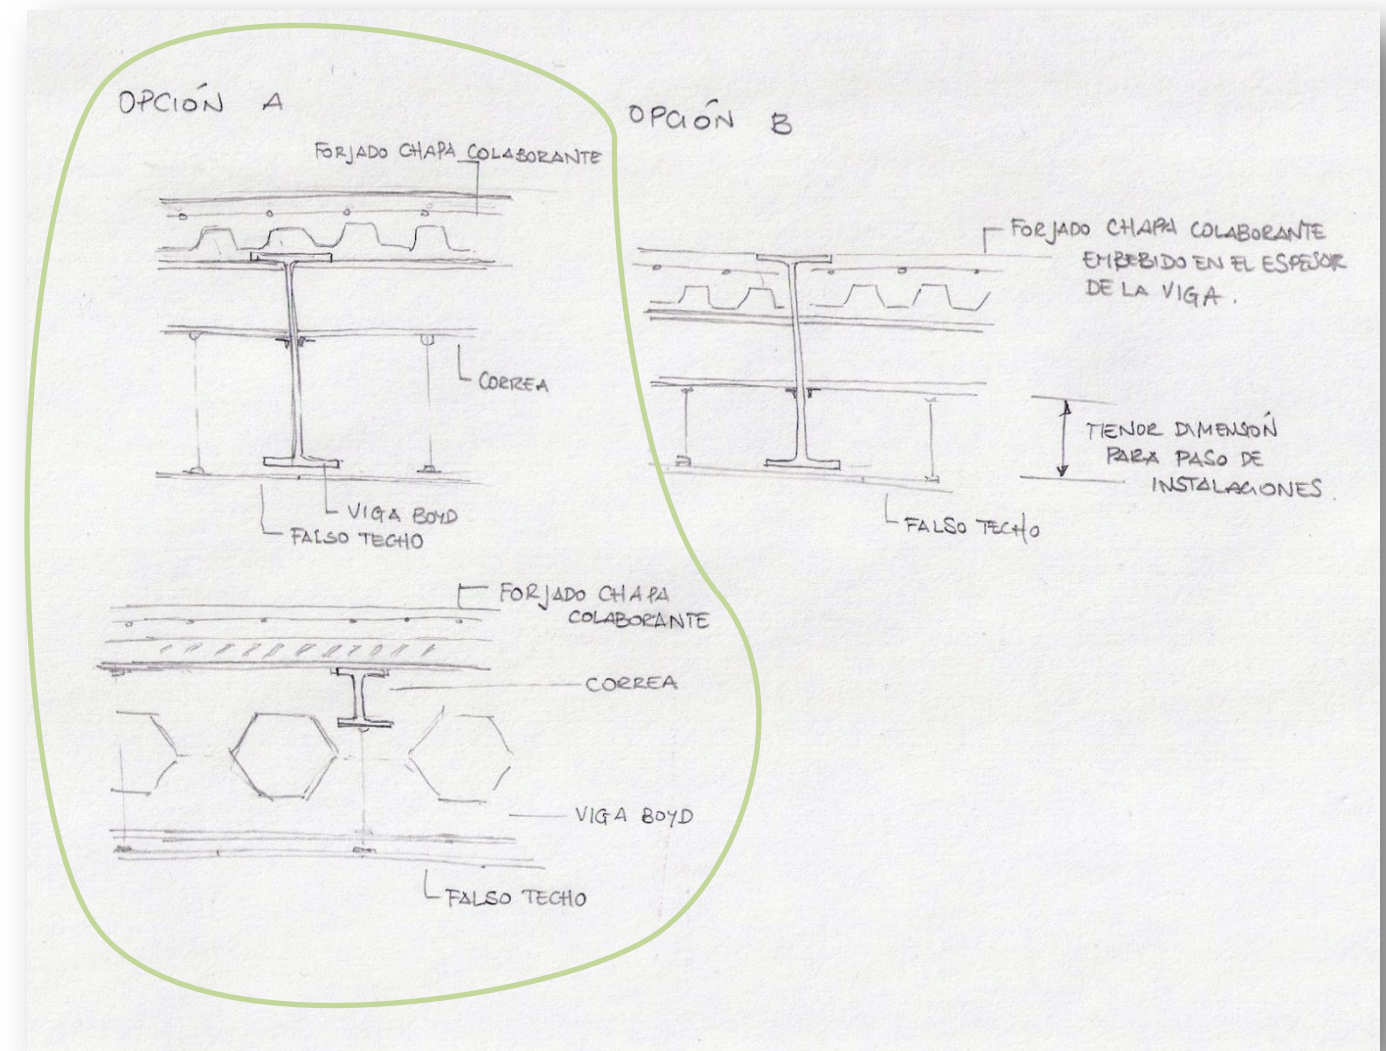 OPCIÓN A
FORJADO CHAPA COLABORANTE
CORREA
VIGA BOYD
FALSO TECHO
FORJADO CHAPA
COLABORANTE
CORREA
VIGA BOYD
FALSO TECHO
OPCIÓN B
FORJADO CHAPA COLABORANTE
EMBEBIDO EN EL ESPESOR
DE LA VIGA.
MENOR DIMENSIÓN
PARA PASO DE
INSTALACIONES.
FALSO TECHO